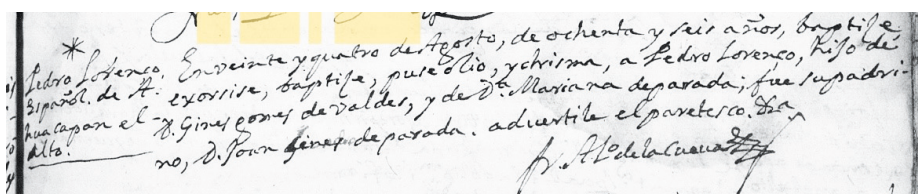 Pedro Lorenço.
español. de A-
huacapan el
alto.
En veinte y quatro de Agosto, de ochenta y seis años, baptise
exorsise, baptise, puse olio, y chrisma, a Pedro Lorenço, hijo de
D. Gines gomes de valdes, y de Dª. Mariana de parada; fue su padri-
no, D. Joan de parada. advertile el paretesco.
fr. Aᵒ. de la Cueva